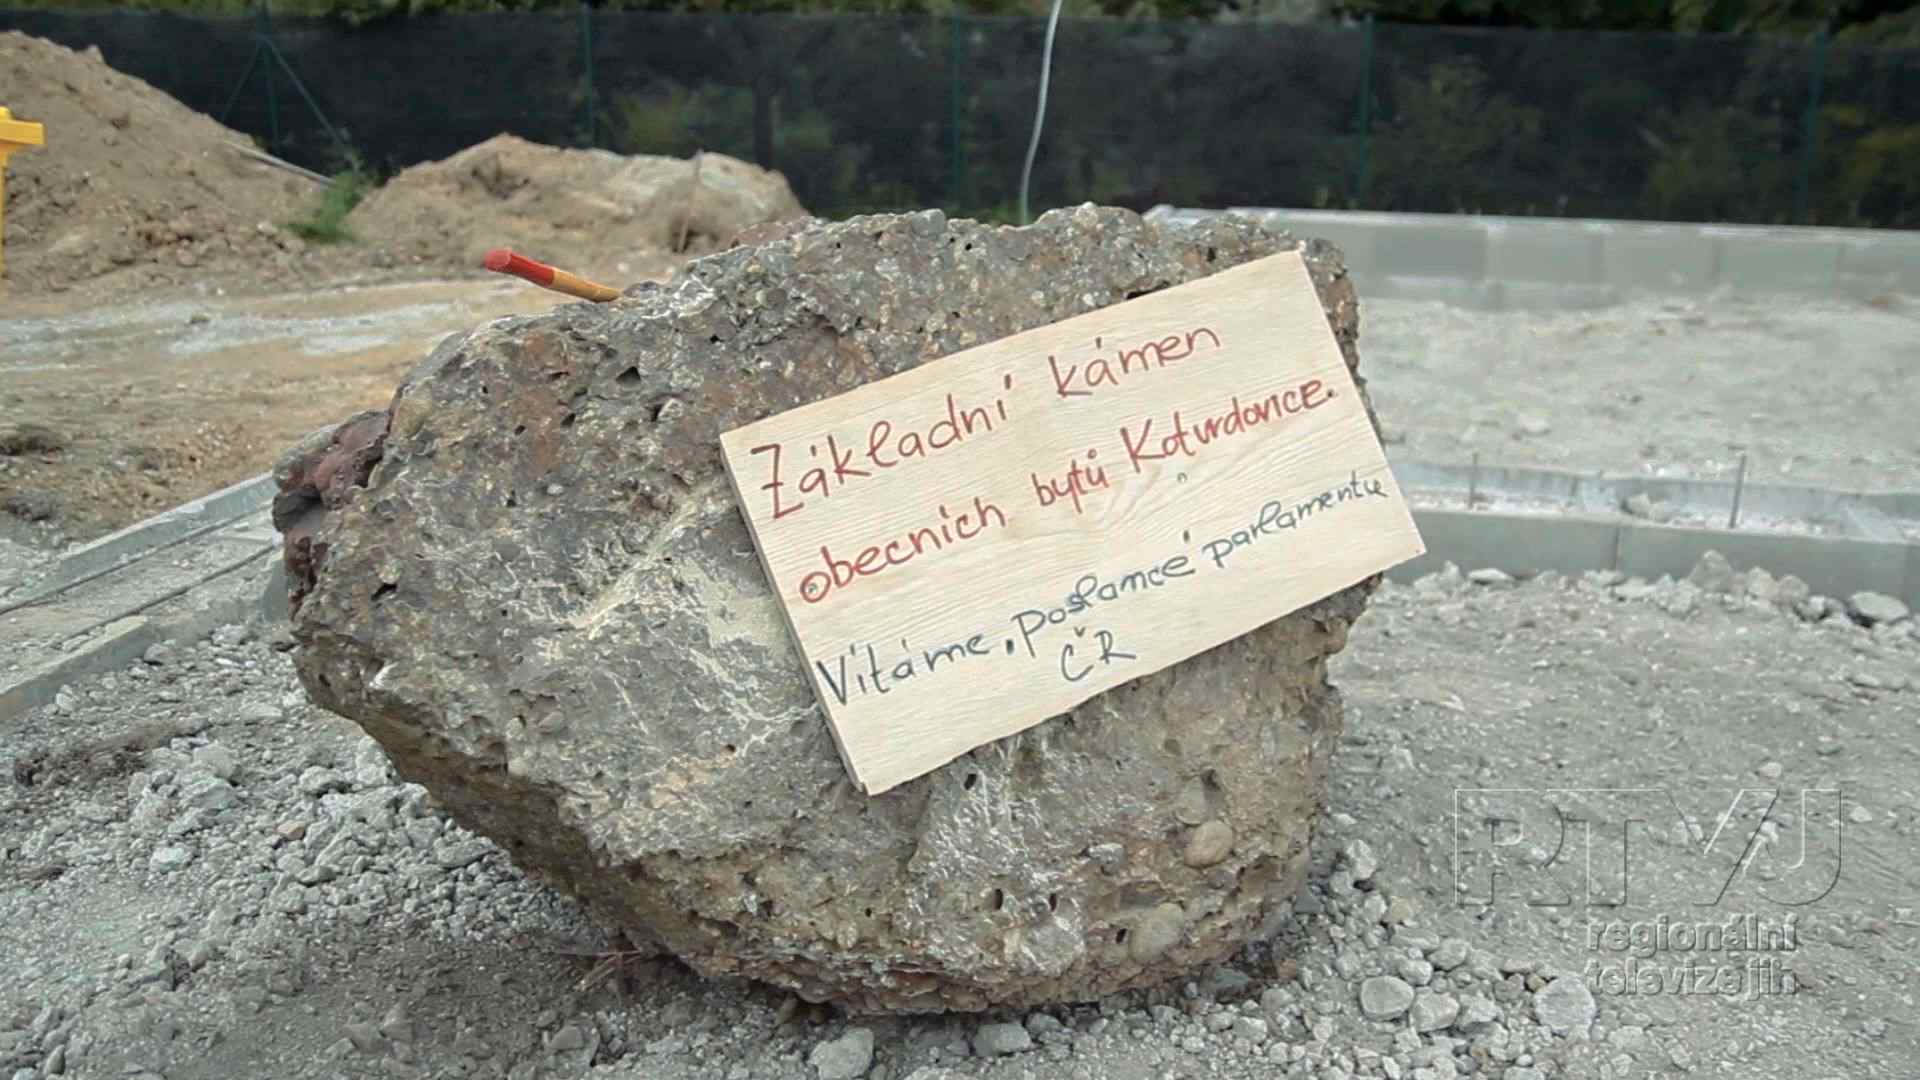 Základní kámen
obecních bytů Kotvrdovice.
Vítáme, poslance parlamentu
ČR
RTVJ
regionální
televize jih